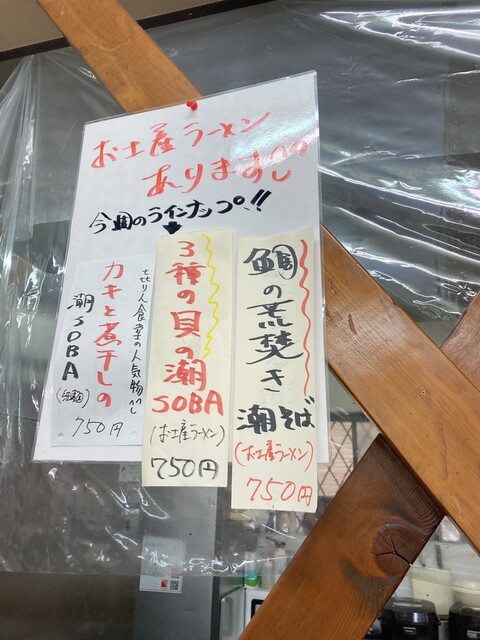 お土産ラーメン
あります!!
今週のラインナップ!!
鯛の荒焚き
潮そば
(お土産ラーメン)
750円
3種の貝の潮
SOBA
(お土産ラーメン)
750円
カキと煮干しの
潮SOBA
750円